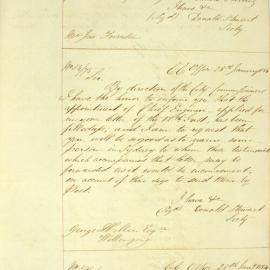 I have &c
(Sig d) Donald Stewart
Secty
Mr Jas
C C Office 28th January 1854
Sir,
By direction of the City Commissioners
I have the honor to inform you that the
appointment of Chief Engineer applied for
in your letter of the 18th Inst. has been
filled up, and I am to request that
you will be so good as to name some
person in Sydney to whom the testimonials
which accompanied that letter may be
forwarded as it would be inconvenient
on account of their size to send them by
Post.
I have &c
Donald Stewart
Secty
George Esqre
Wollongong
C C Office 28th